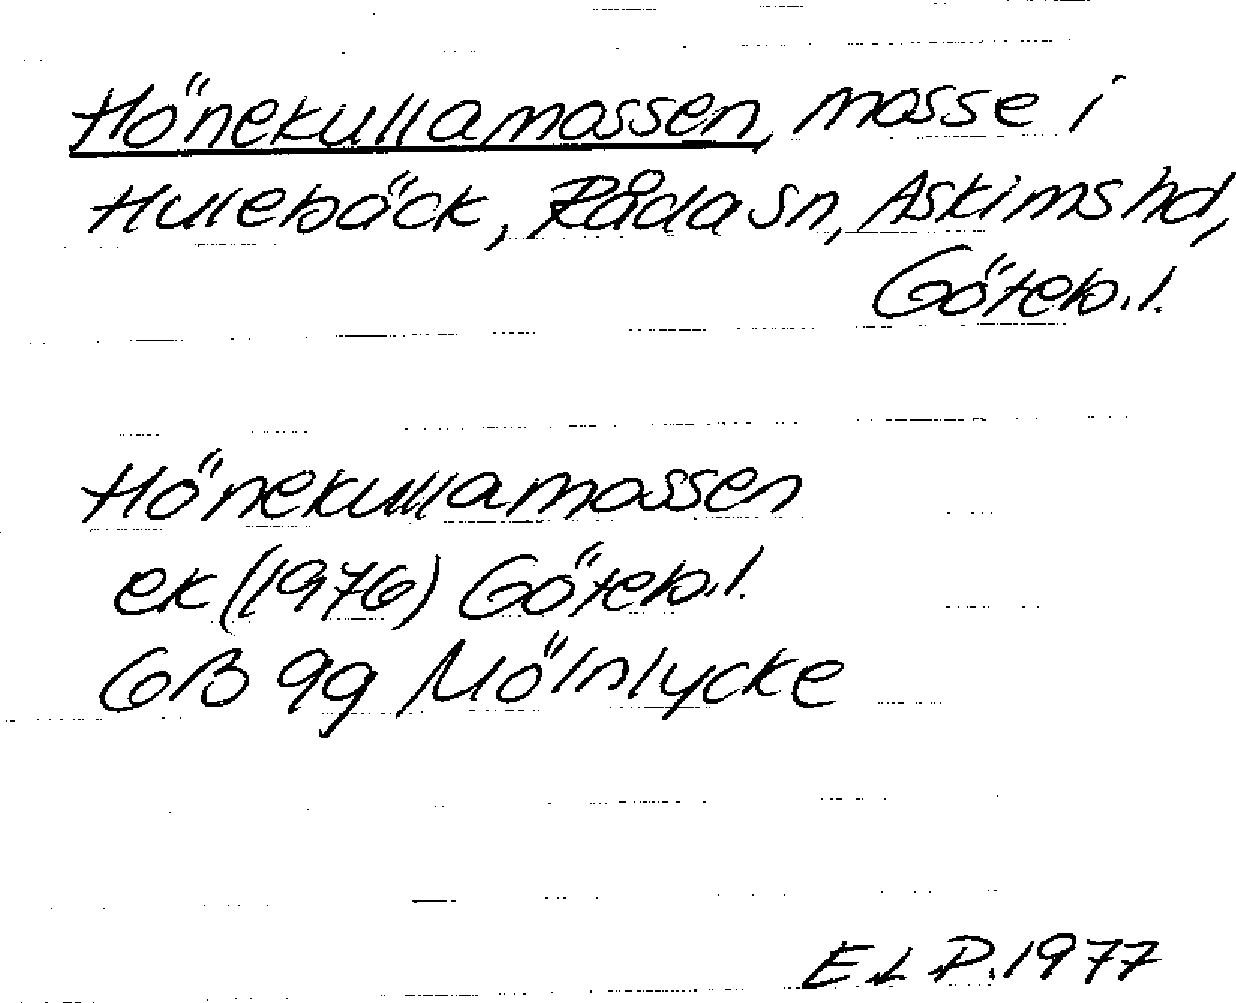 Hönekullamossen, mosse i
Hulebäck, Råda sn, Askims hd,
Göteb.l.
Hönekullamossen
ek (1976) Göteb.l.
GB 9g Mölnlycke
E.L.P. 1977